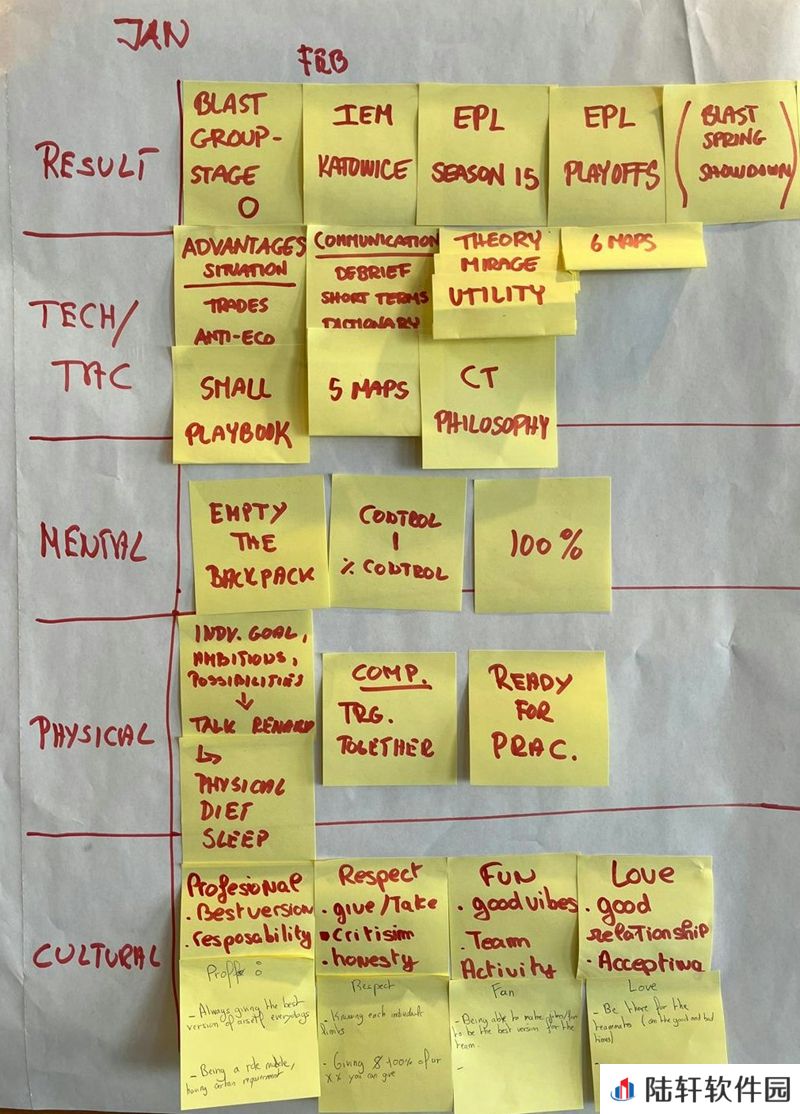 JAN
FEB
RESULT
BLAST
GROUP-
STAGE
O
IEM
KATOWICE
EPL
SEASON 15
EPL
PLAYOFFS
(BLAST
SPRING
SHOWDOWN)
TECH/
TAC
ADVANTAGES
SITUATION
TRADES
ANTI-ECO
SMALL
PLAYBOOK
COMMUNICATION
DEBRIEF
SHORT TERMS
DICTIONARY
5 MAPS
THEORY
MIRAGE
UTILITY
CT
PHILOSOPHY
6 MAPS
MENTAL
EMPTY
THE
BACKPACK
CONTROL
% CONTROL
100%
PHYSICAL
INDV. GOAL,
AMBITIONS,
POSSIBILITIES
↓
TALK RENARD
↳
PHYSICAL
DIET
SLEEP
COMP.
TRG.
TOGETHER
READY
FOR
PRAC.
CULTURAL
Profesional
. Best version
. resposability
Respect
. give/Take
. critisim
. honesty
FUN
. good vibes
. Team
Activity
Love
. good
relationship
. Accepting
- Always giving the best
version of urself everydays
- Being a role
having certain
Respect
- Knowing each individuals
limits
- Giving 100% of ur
you can give
Fan
- Being able to
to be the best version for the
team.
-
Love
- Be there for the
teammates (on the good and bad
times)
陆轩软件园